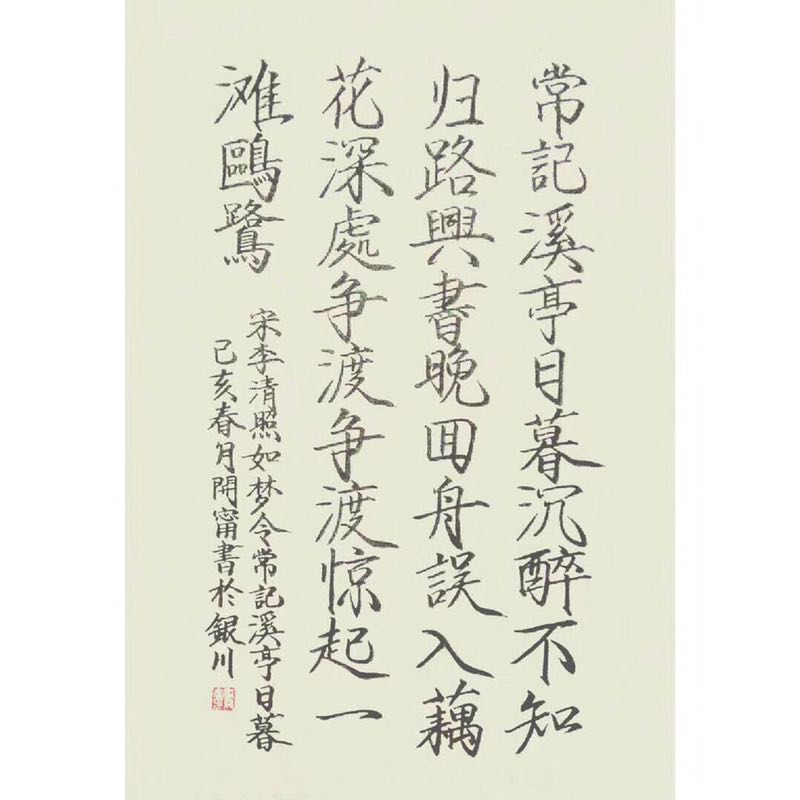 常記溪亭日暮沉醉不知
归路興書晚囬舟誤入藕
花深處争渡争渡惊起一
滩鷗鷺
宋李清照如梦令常記溪亭日暮
己亥春月開甯書於銀川